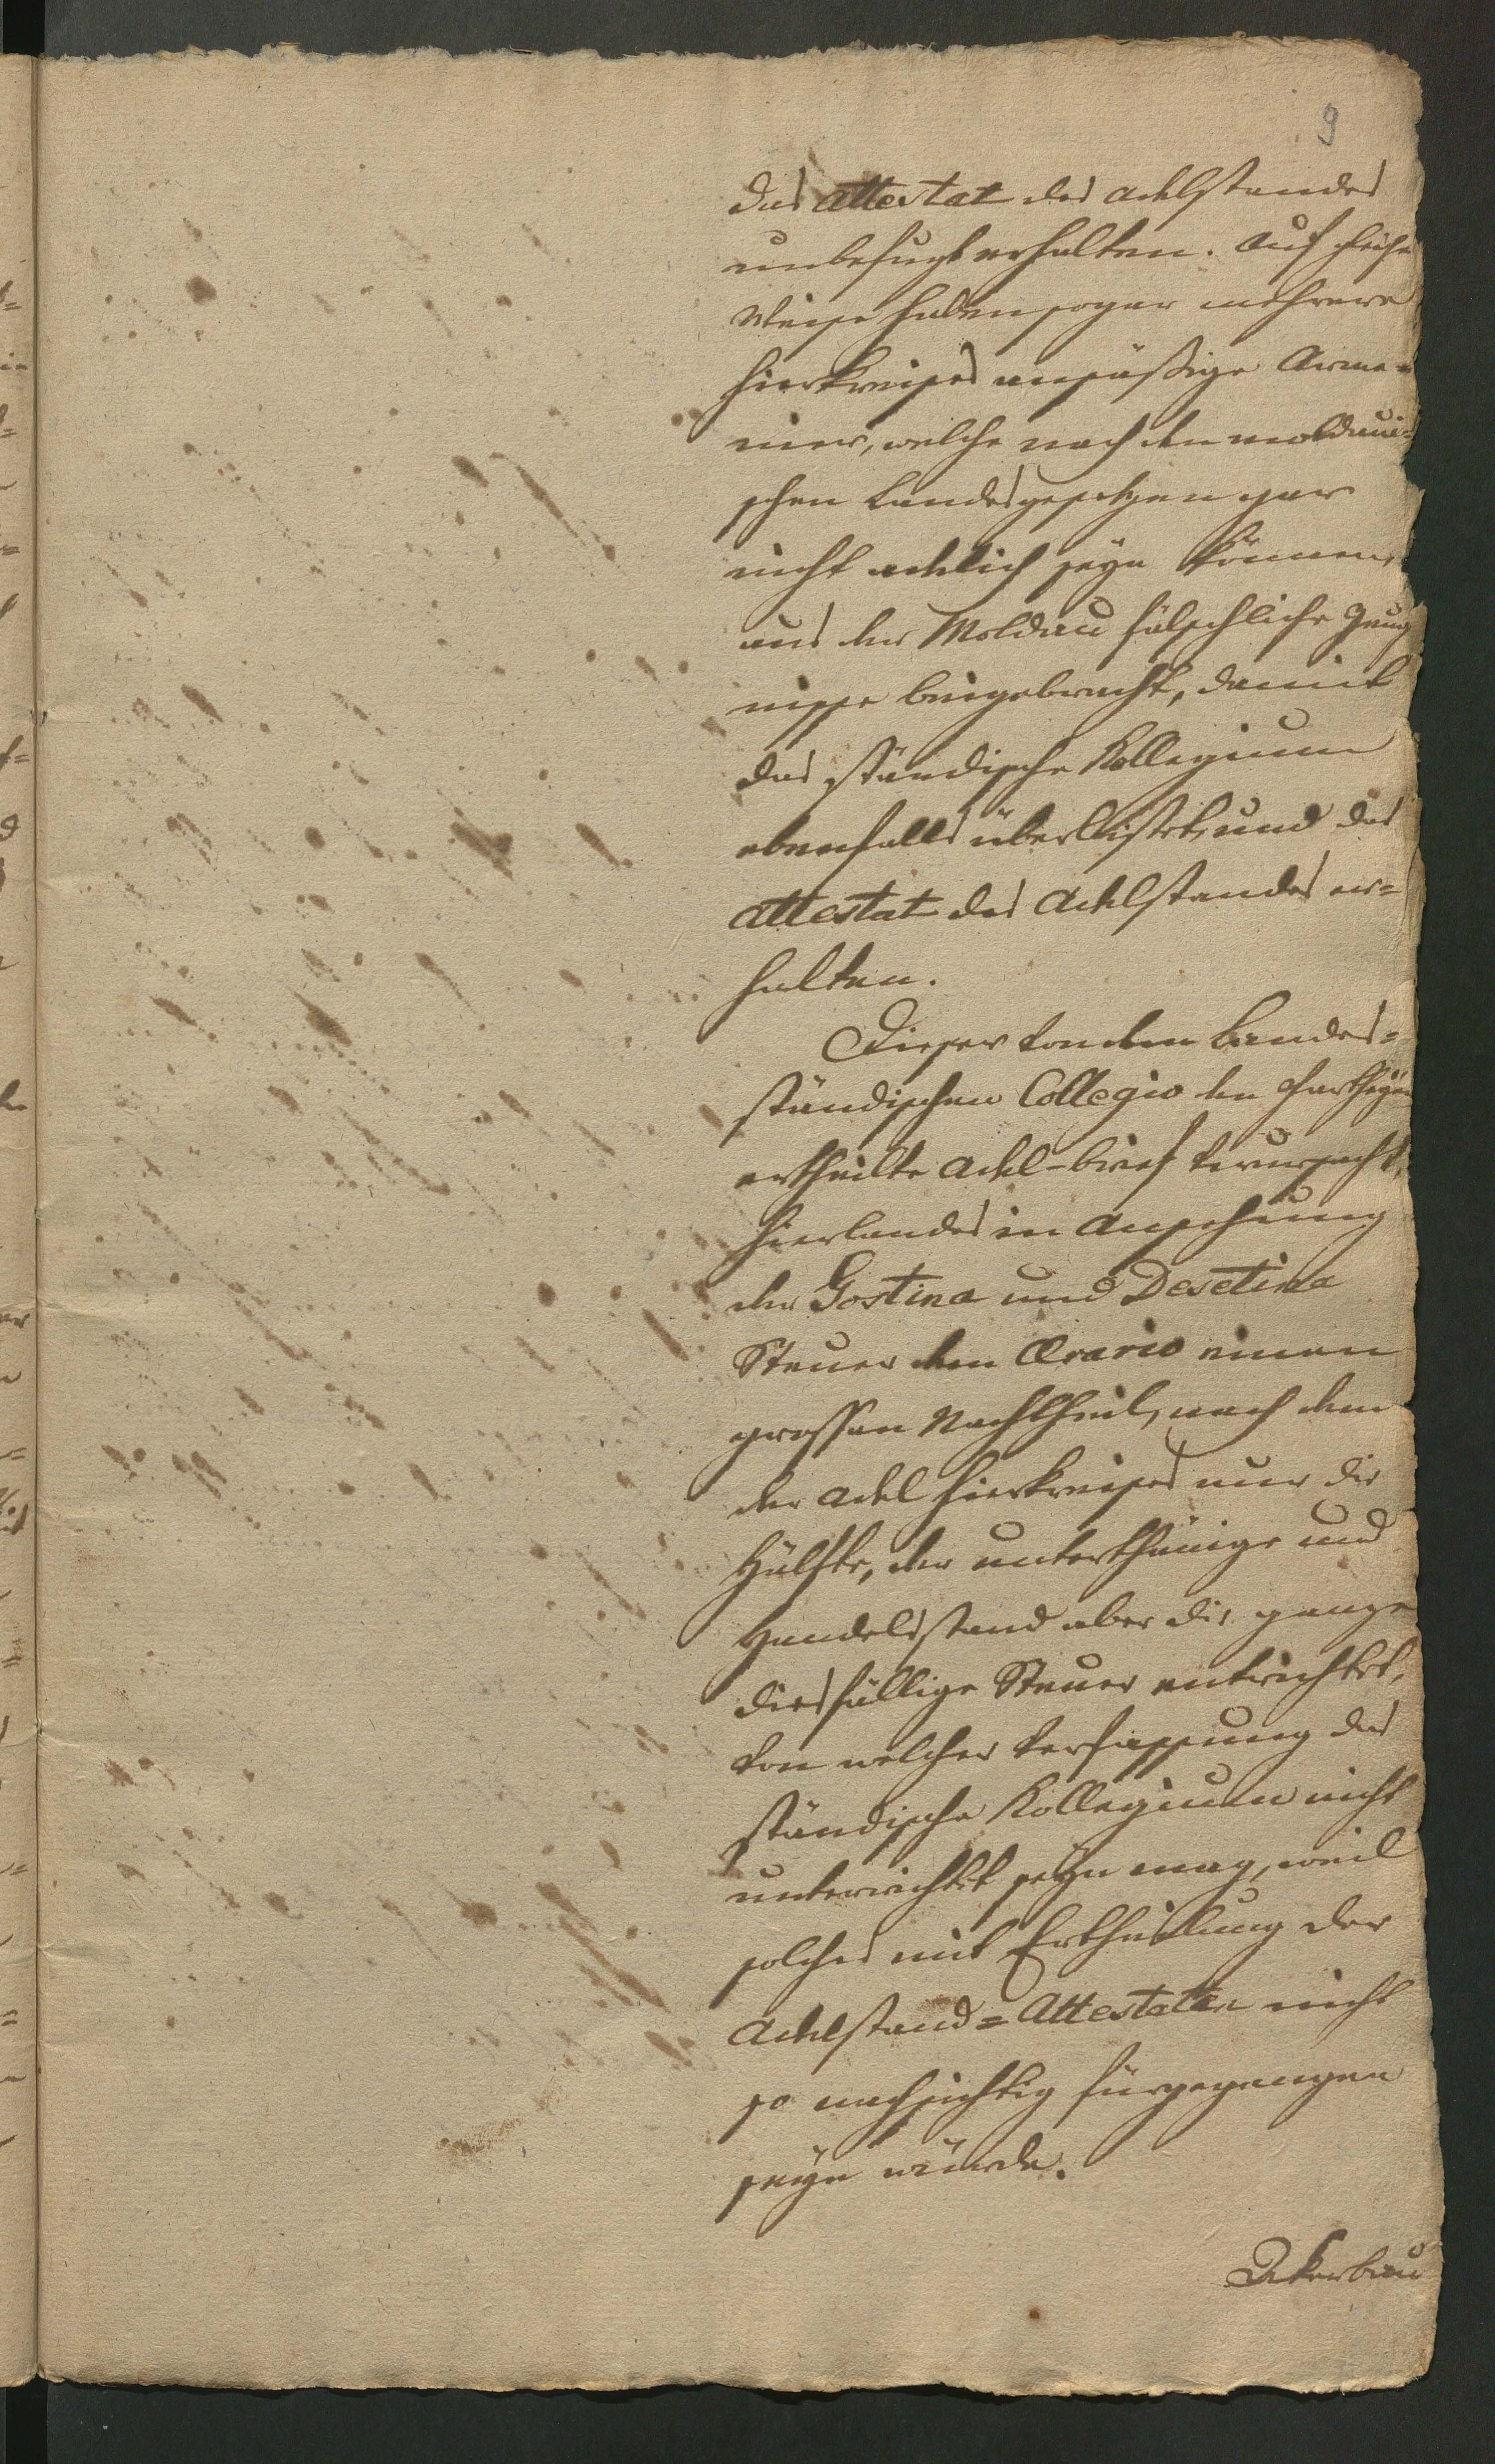 9
das Attestat des Adelstandes
unbefugt erhalten. Auf gleiche
Weise haben sogar mehrere
hierkreises ansäßige Arme-
nier, welche nach den moldaui-
schen Landesgesetzen gar
nicht adelich seyn können,
aus der Moldau fälschliche Zeug
nisse beigebracht, damit
das ständische Kollegium
ebenfalls überlistet, und das
Attestat des Adelstandes er=
halten.
Dieser von dem Landes=
ständischen Collegio den Partheyen
ertheilte Adel-brief verursacht,
hierlandes in Ansehung
der Gostina und Desetina
Steuer dem Ærario einen
grossen Nachtheil, nach dem
der Adel hierkreises nur die
Hälfte, der unterthänige und
Handelsstand aber die ganze
diesfällige Steuer entrichtet,
von welcher Verfassung das
ständische Kollegium nicht
unterrichtet seyn mag, weil
solches mit Ertheilung der
Adelstand=Attestaten nicht
so nachsichtig fürgegangen
seyn würde.
Akerbau